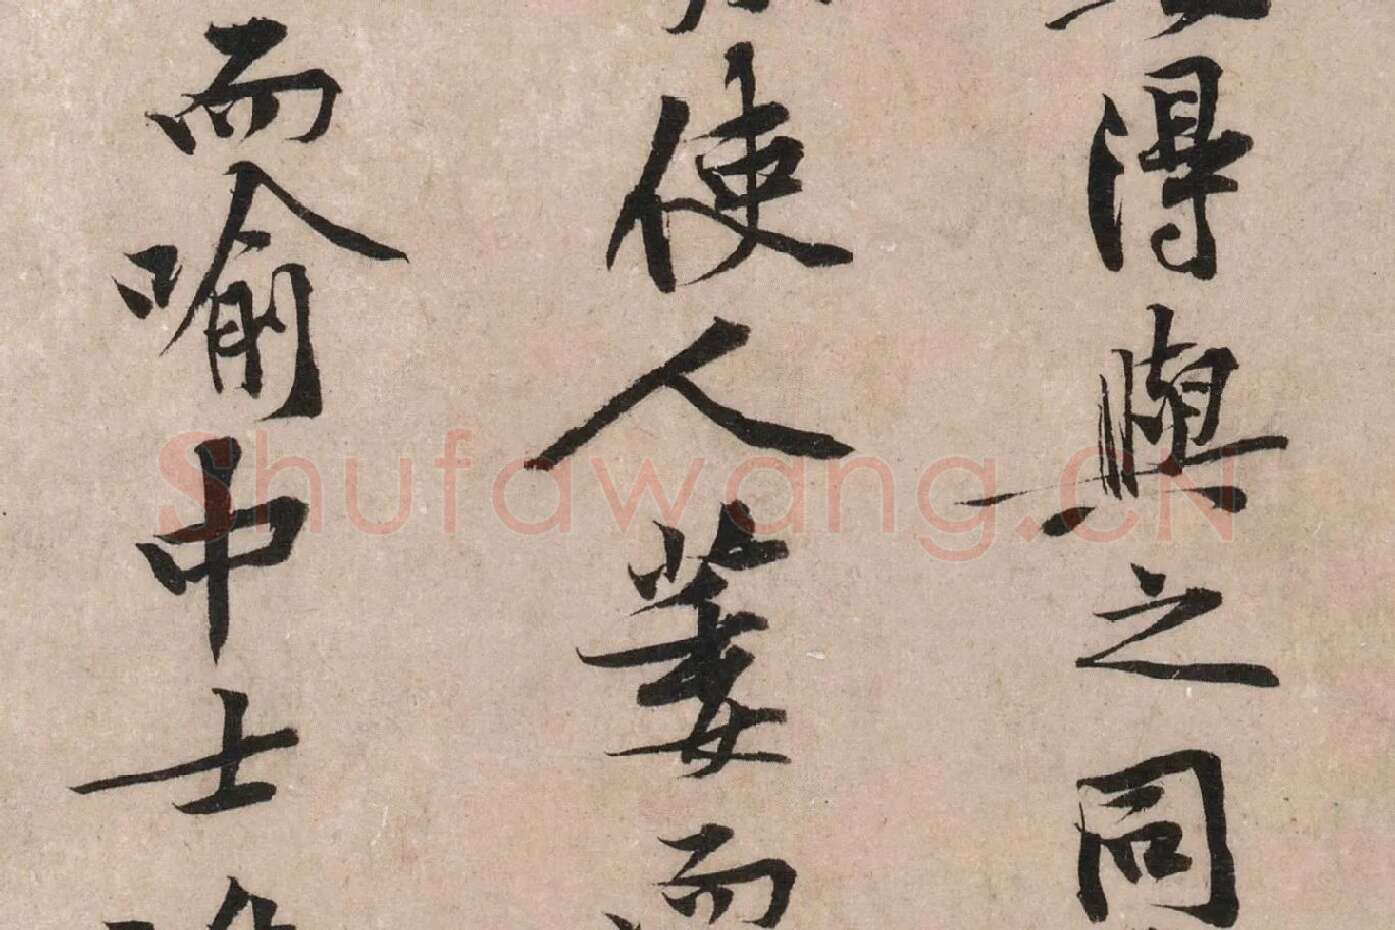 得與之同
使人萎而
而喻中士
Shufawang.CN